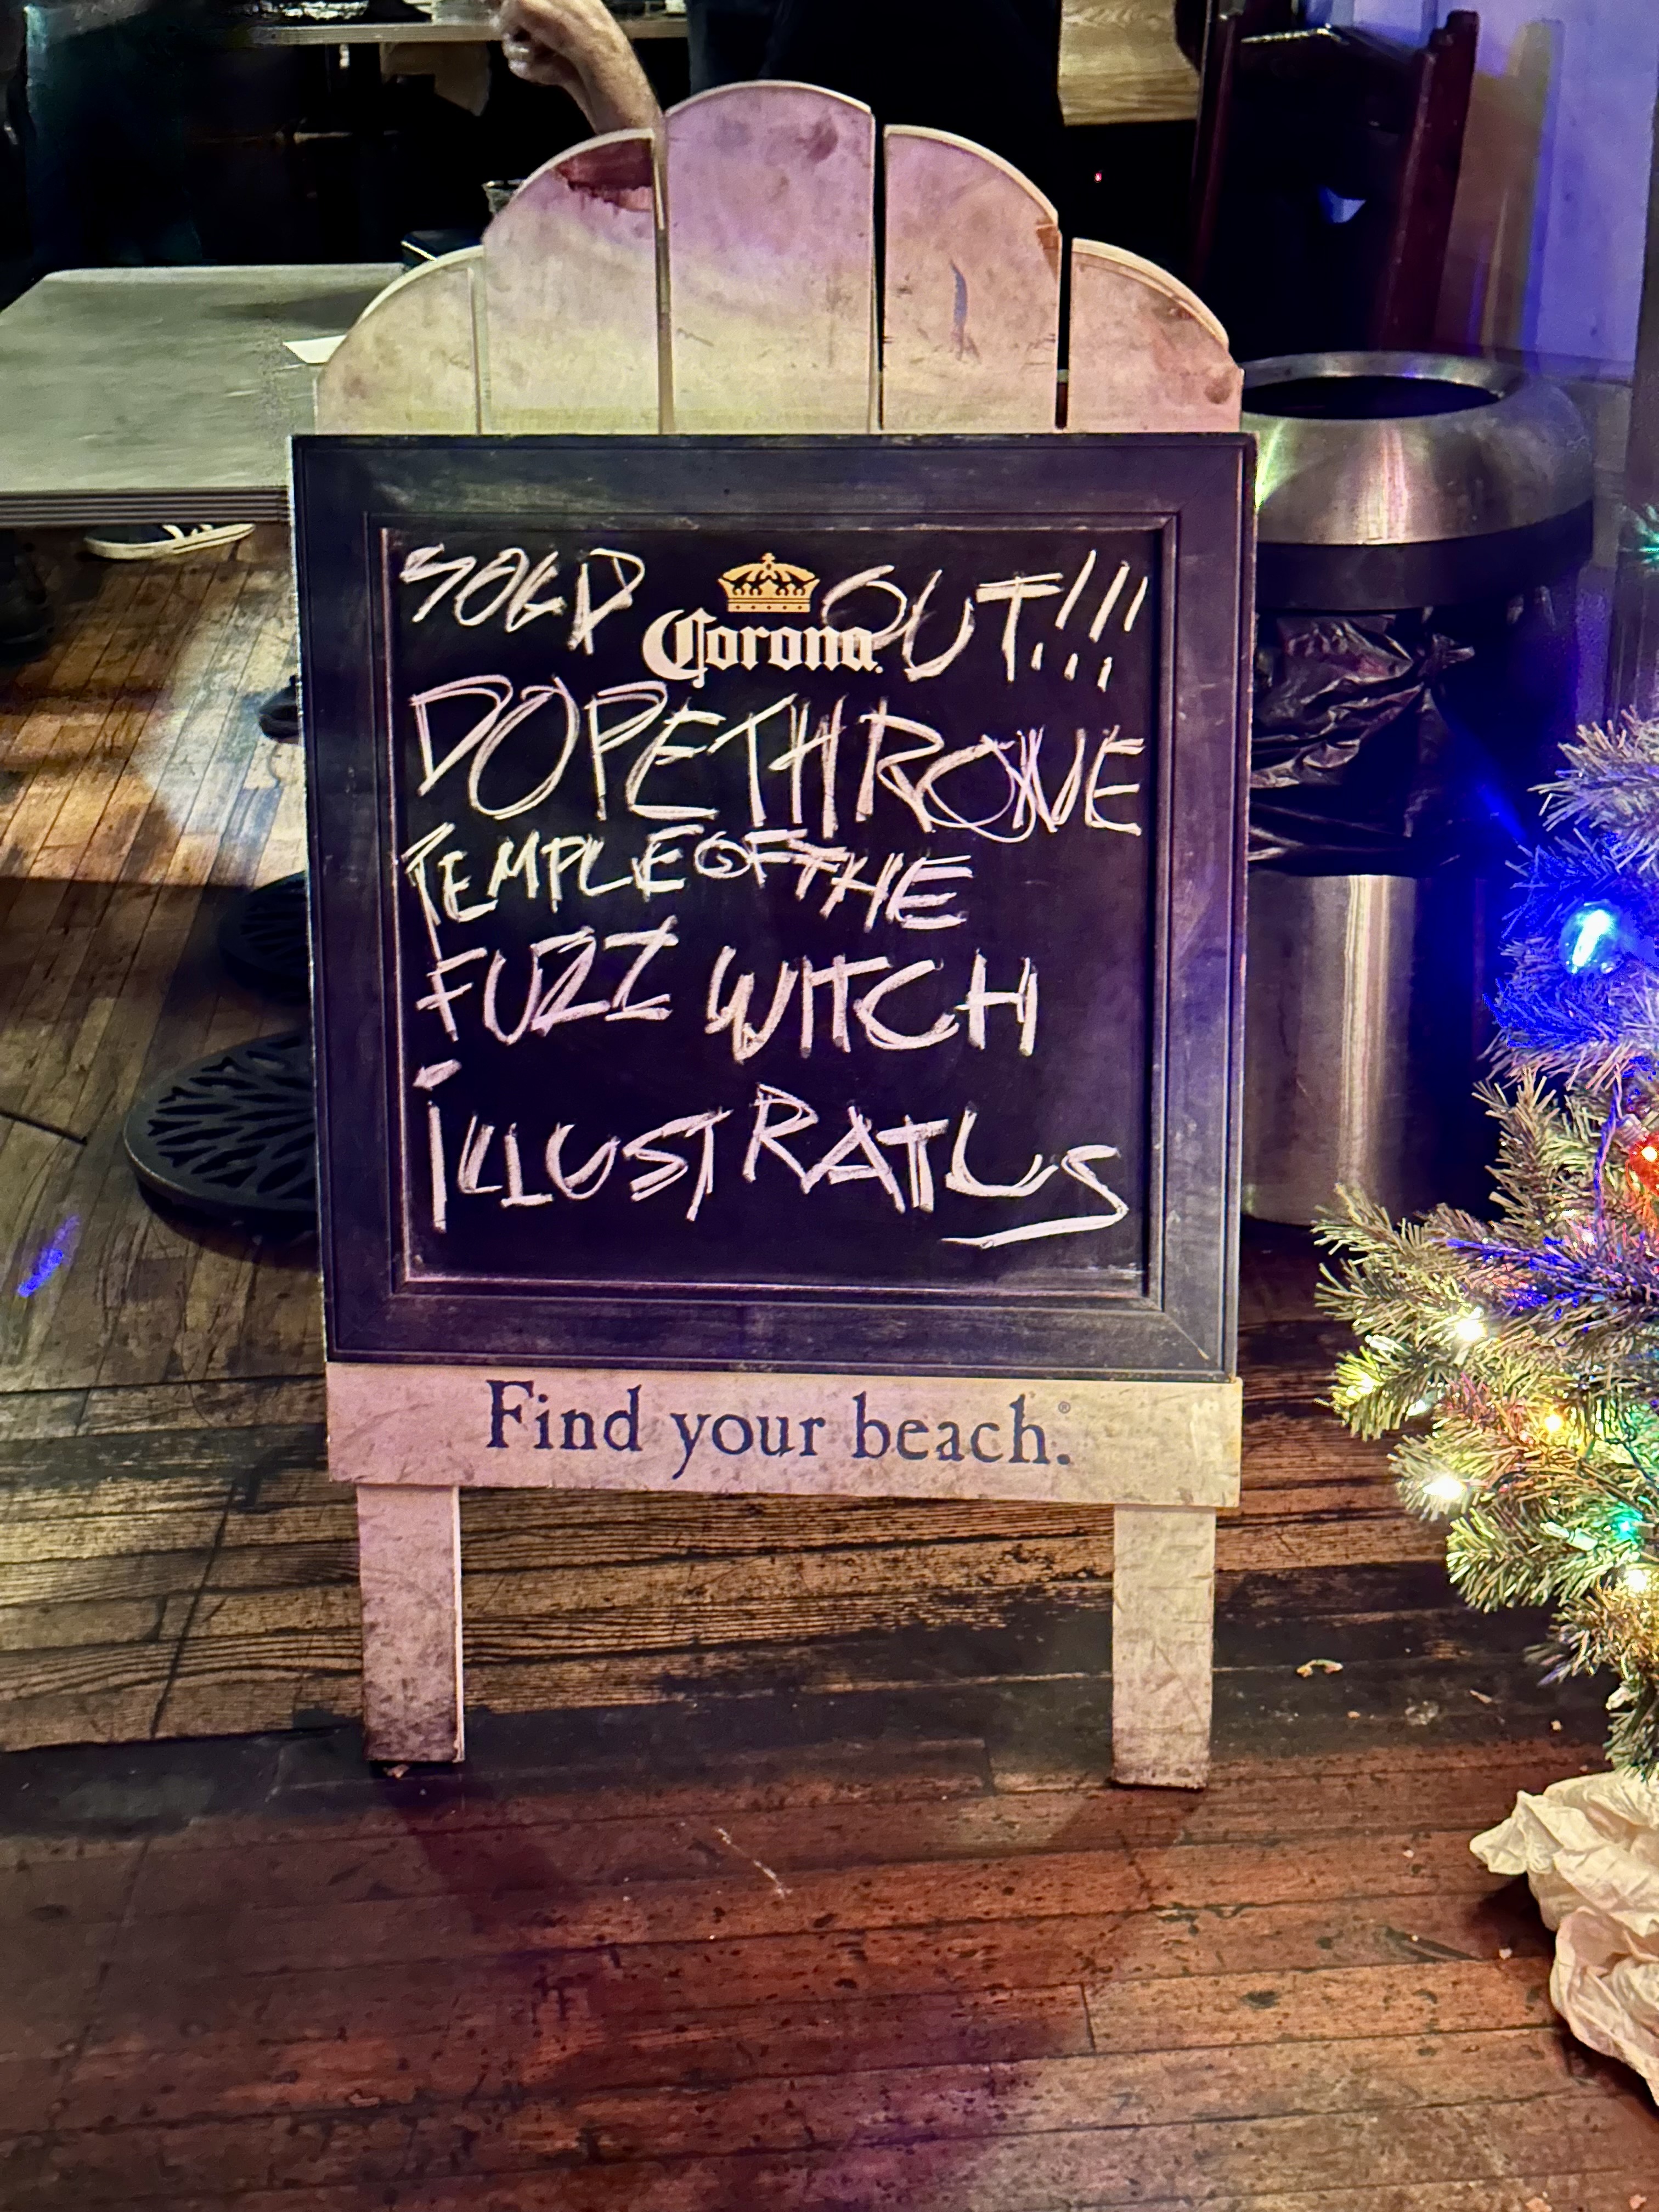 SOLD OUT!!!
Corona
DOPETHRONE
TEMPLE OF THE
FUZZ WITCH
iLLUSTRATUS
Find your beach.®